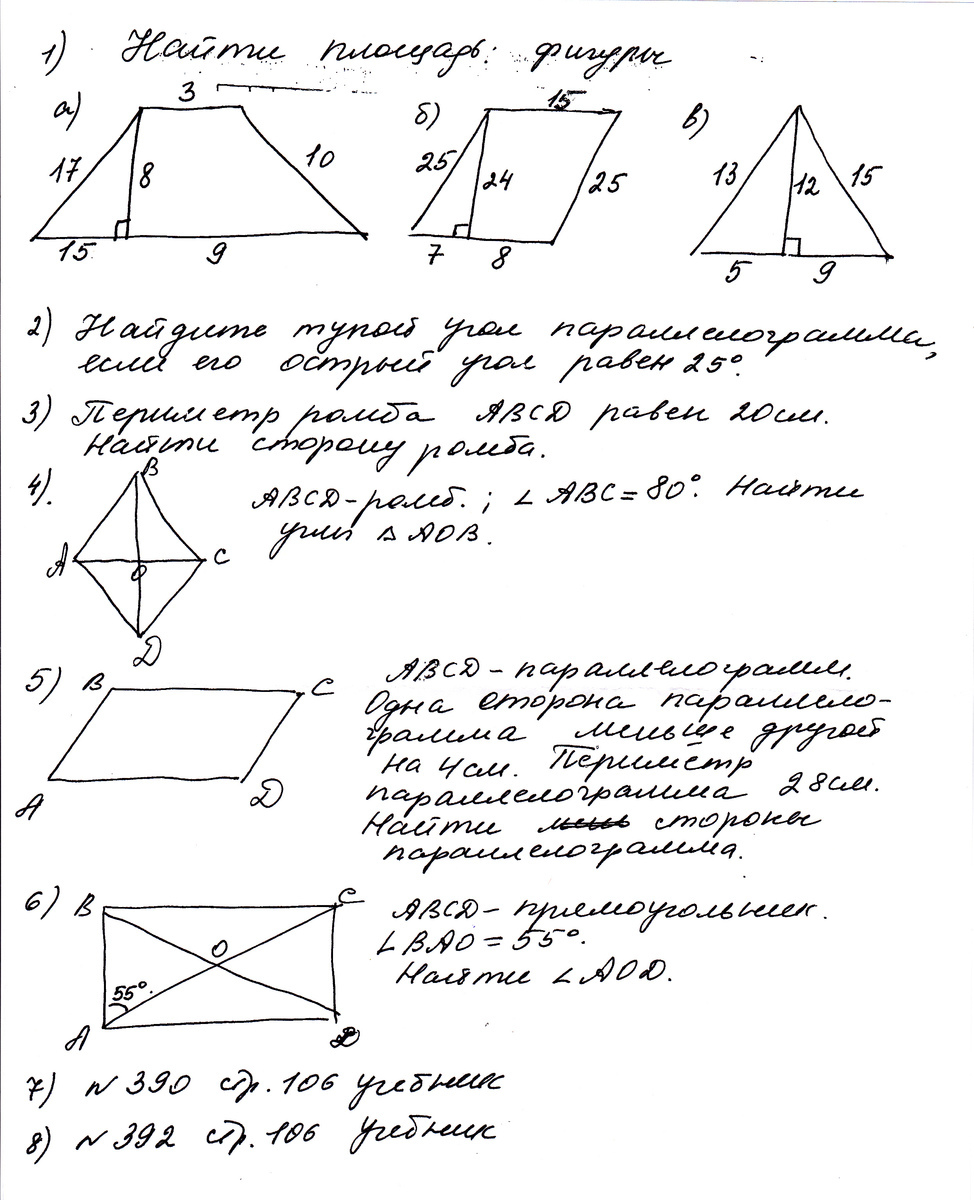 1) Найти площадь: фигуры
а) 3 17 8 10 15 9
б) 15 25 24 25 7 8
в) 13 12 15 5 9
2) Найдите тупой угол параллелограмма,
если его острый угол равен 25°.
3) Периметр ромба ABCD равен 20см.
Найти сторону ромба.
4). B A C O D
ABCD-ромб. ; ∠ ABC = 80°. Найти
углы Δ AOB.
5) B C A D
ABCD - параллелограмм.
Одна сторона параллело-
грамма меньше другой
на 4см. Периметр
параллелограмма 28см.
Найти стороны
параллелограмма.
6) B C O 55°. A D
ABCD - прямоугольник.
∠BAO = 55°.
Найти ∠AOD.
7) №390 стр. 106 учебник
8) №392 стр. 106 учебник